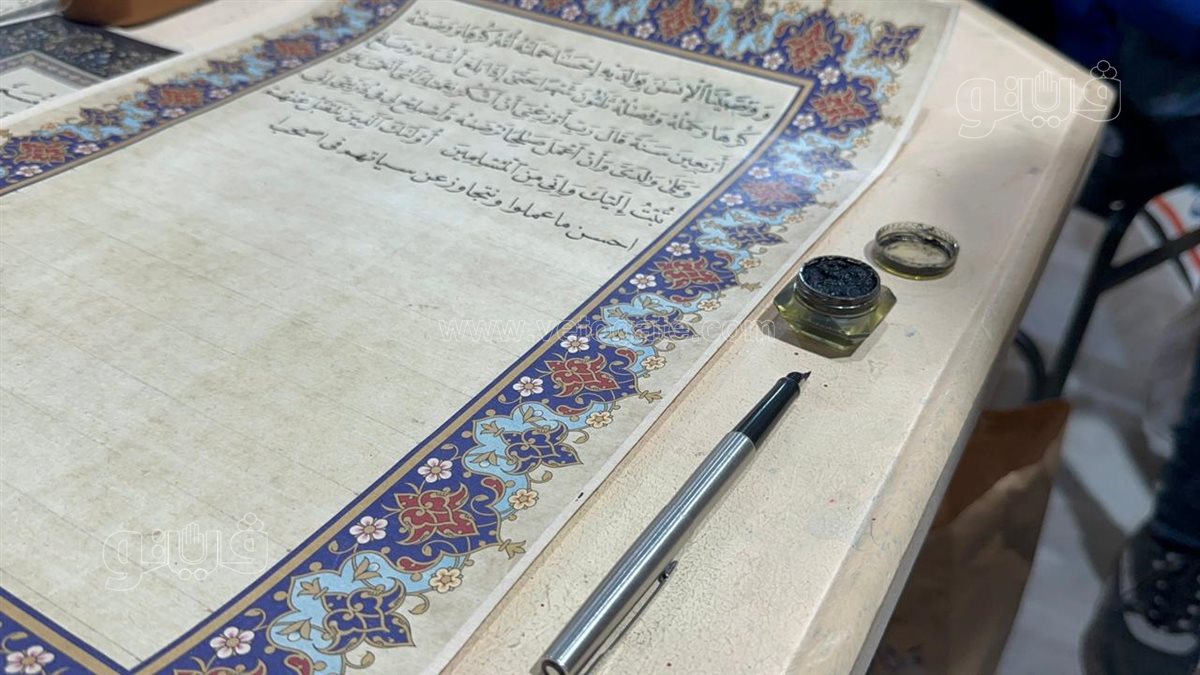 و وصينا الإنسن بولديه إحسنا حملته أمه كرها ووضعته
كرها وحمله وفصله ثلثون شهرا حتى إذا بلغ أشده وبلغ
أربعين سنة قال رب أوزعنى أن أشكر نعمتك التى أنعمت على
وعلى ولدى وأن أعمل صلحا ترضه وأصلح لى فى ذريتى إنى
تبت إليك وإنى من المسلمين أولئك الذين نتقبل عنهم
احسن ما عملوا ونتجاوز عن سياتهم فى اصحب ا
فرینو
www.verincafe.com
فرینو